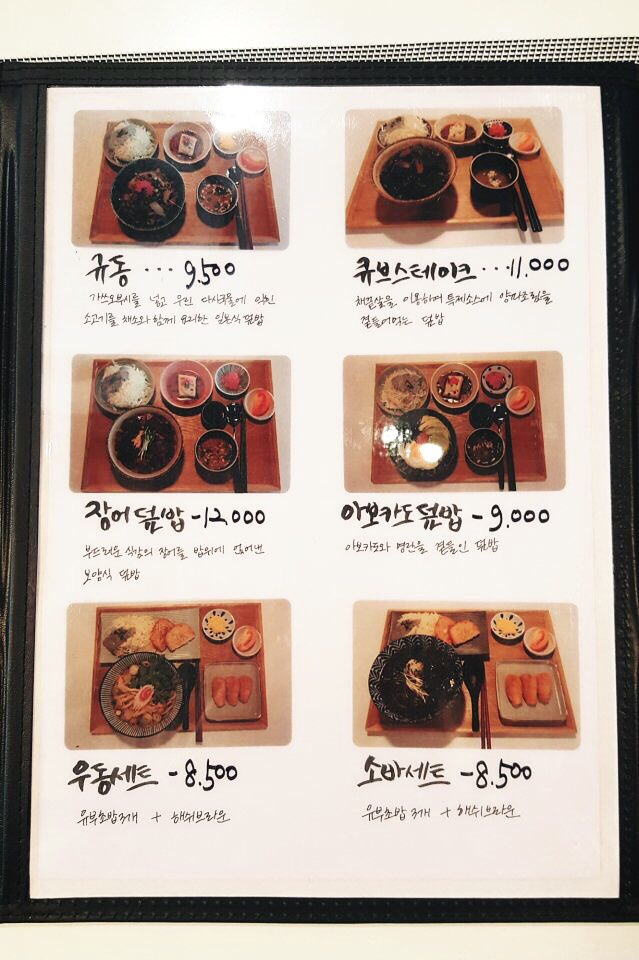 규동 ... 9,500
가쓰오부시를 넣고 우린 다시국물에 익힌
소고기를 채소와 함께 요리한 일본식 덮밥
큐브스테이크 ... 11,000
채끝살을 이용하며 특제소스에 양파초림을
곁들어먹는 덮밥
장어덮밥 - 12,000
부드러운 식감의 장어를 밥위에 얹어낸
보양식 덮밥
아보카도덮밥 - 9,000
아보카도와 명란을 곁들인 덮밥
우동세트 - 8,500
유부초밥 3개 + 해쉬브라운
소바세트 - 8,500
유부초밥 3개 + 해쉬브라운